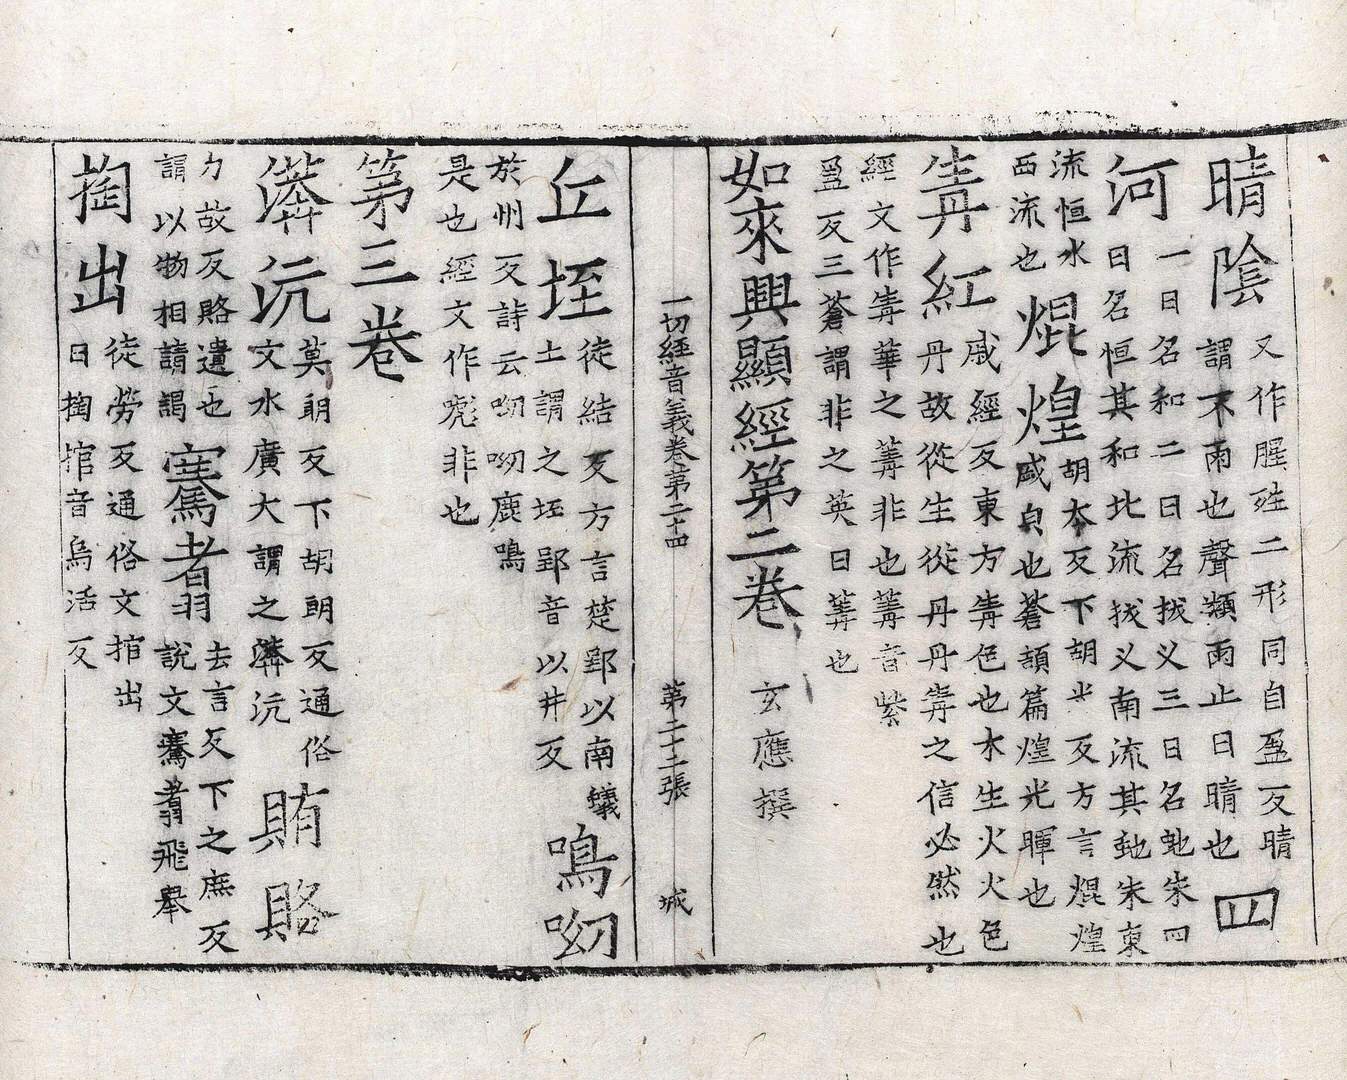 晴陰
又作腥殅二形同自盈反晴
謂不雨也聲類雨止曰晴也
四
河
一曰名和二曰名拔义三曰名虵朱四
曰名恒其和北流拔义南流其虵朱東
流恒水
西流也
焜煌
胡本反下胡光反方言焜煌
盛皃也蒼頡篇煌光暉也
靑紅
戚經反東方靑色也木生火火色
丹故從生從丹丹靑之信必然也
經文作靑華之菁非也菁音紫
盈反三蒼謂非之英曰菁也
如來興顯經第二卷 玄應撰
一切經音義卷第二十四 第二十二張 城
丘垤
徒結反方言楚郢以南蟻
土謂之垤郢音以井反
鳴呦
於州反詩云呦呦鹿鳴
是也經文作彪非也
第三卷
漭沆
莫朗反下胡朗反通俗
文水廣大謂之漭沆
賄賂
力故反賂遺也
謂以物相請謁
騫翥
去言反下之庶反
說文騫翥飛舉
掏出
徒勞反通俗文捾出
曰掏捾音烏活反